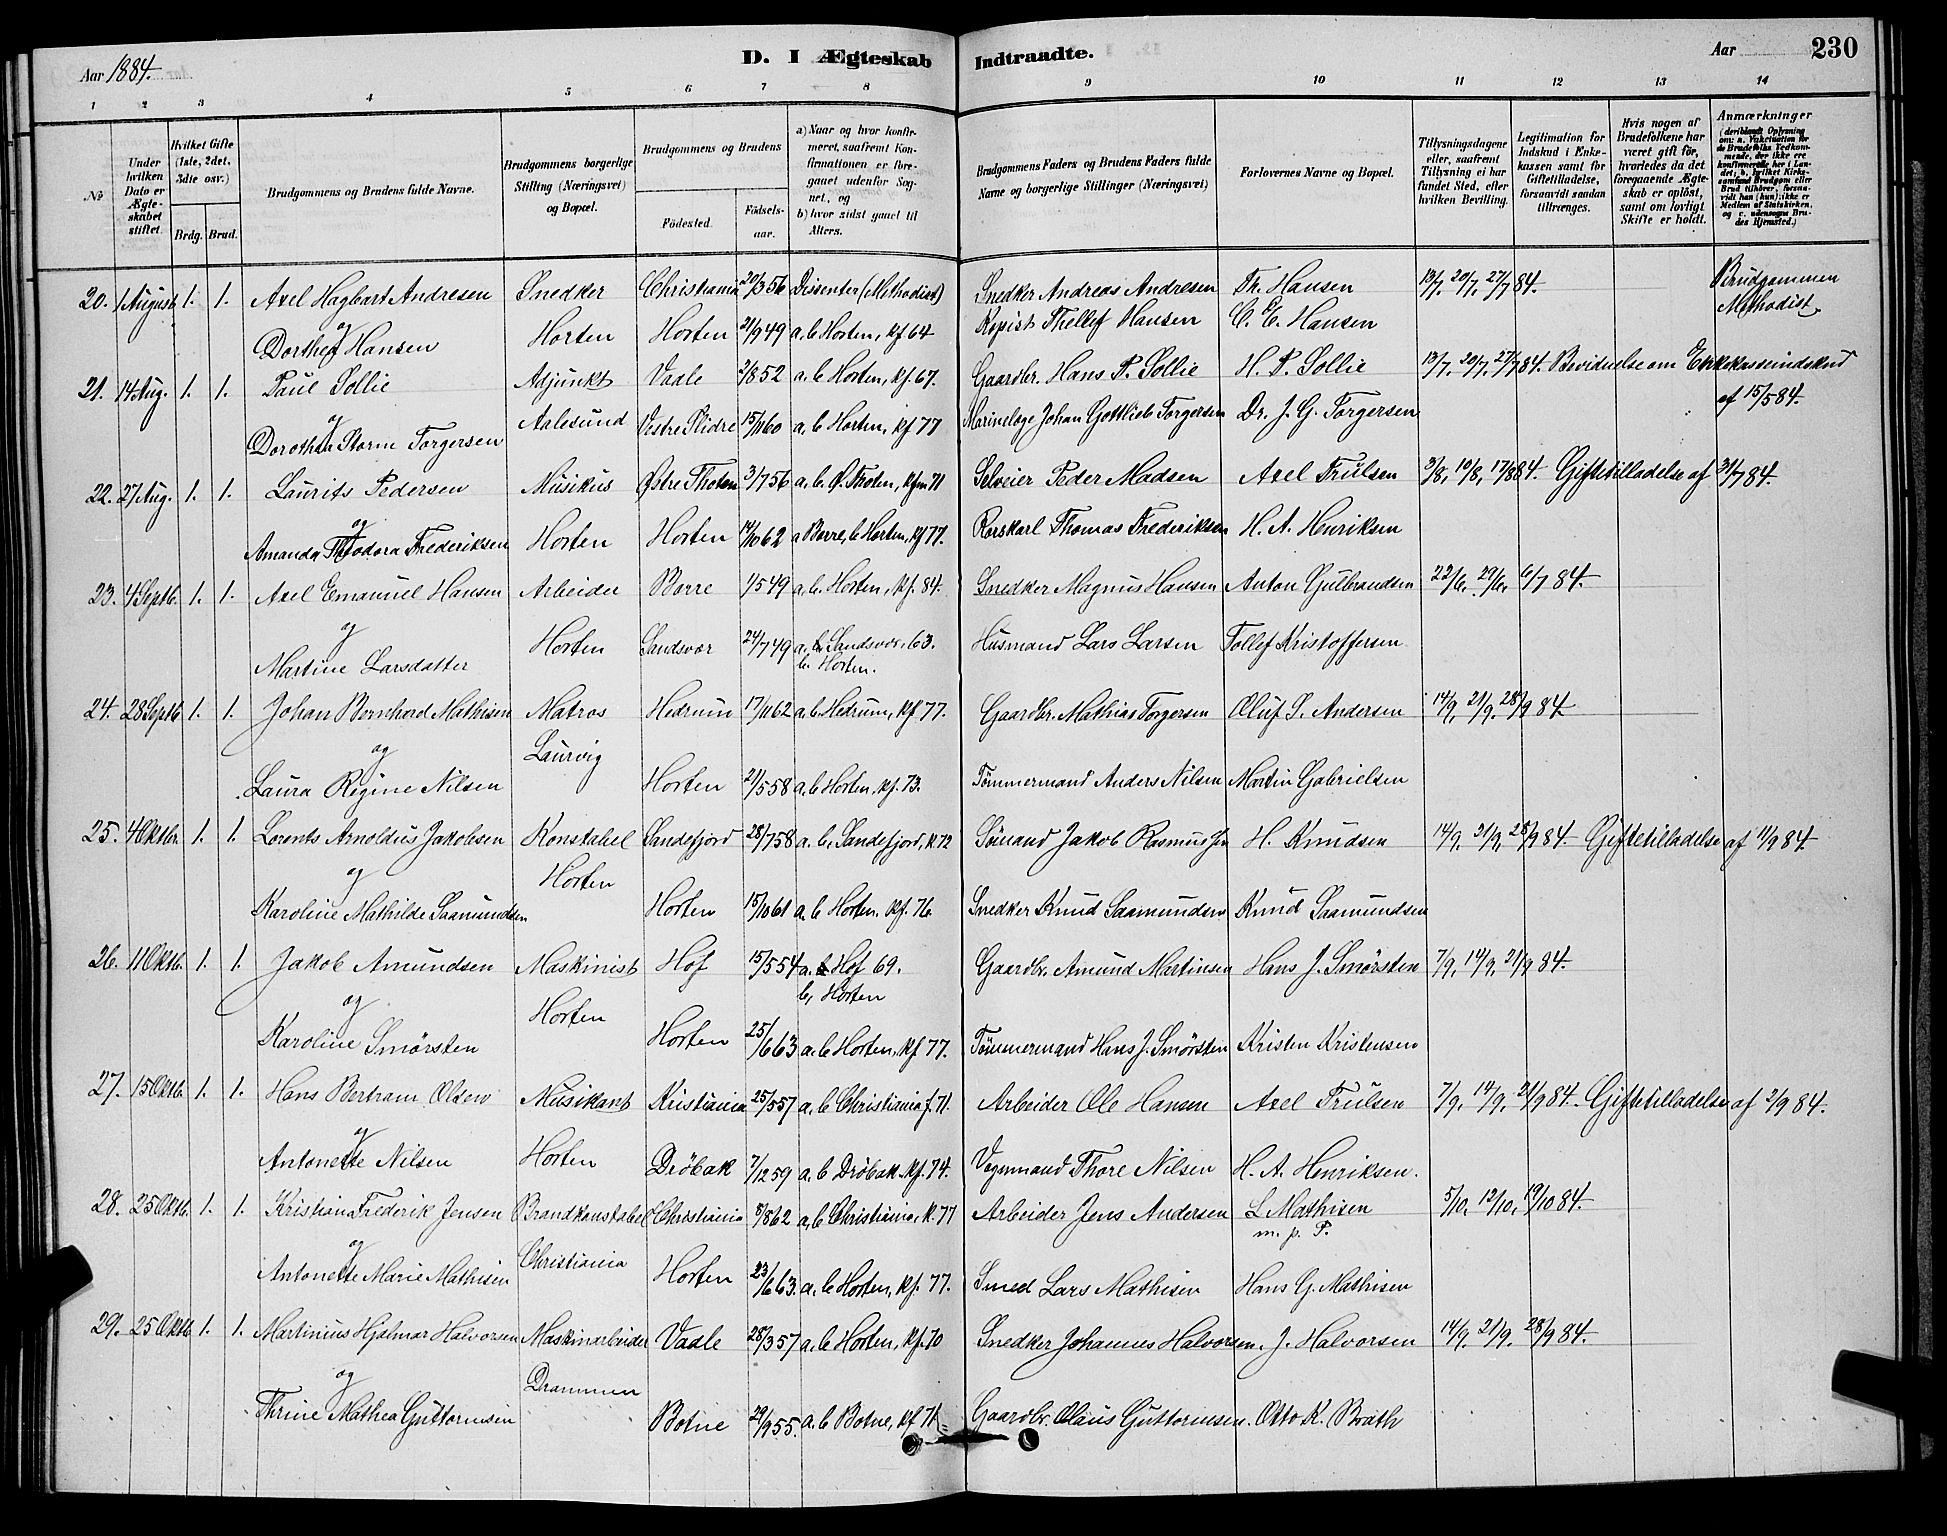 Aar 1884.
D. I Ægteskab Indtraadte.
Aar 230
1 2 3 4 5 6 7 8 9 10 11 12 13 14
№
Under hvilken Dato er Ægteskabet stiftet.
Hvilket Gifte (1ste, 2det, 3die osv.)
Brdg. Brud.
Brudgommens og Brudens fulde Navne.
Brudgommens borgerlige Stilling (Næringsvei) og Bopæl.
Brudgommens og Brudens
Födested. Födselsaar.
a) Naar og hvor konfirmeret, saafremt Konfirmationen er foregaaet udenfor Sognet, og
b) hvor sidst gaaet til Alters.
Brudgommens Faders og Brudens Faders fulde Navne og borgerlige Stillinger (Næringsvei)
Forlovernes Navne og Bopæl.
Tillysningsdagene eller, saafremt Tillysning ei har fundet Sted, efter hvilken Bevilling.
Legitimation for Indskud i Enkekassen samt for Giftetilladelse, forsaavidt saadan tiltrænges.
Hvis nogen af Brudefolkene har været gift før, hvorledes da det foregaaende Ægteskab er opløst, samt om lovligt Skifte er holdt.
Anmærkninger
20. 1 August 1. 1. Axel Hagbart Andresen Snedker Christiania 20/3 56 Dissenter (Methodist) Snedker Andreas Andresen Fr. Hansen 13/7, 20/7, 27/7 84. Brudgommen Methodist
og
Dorthea Hansen Horten Horten 21/9 49 a, b Horten, kf 64 Kopist Thellef Hansen C. C. Hansen
21. 14 Aug. 1. 1. Paul Sollie Adjunkt Vaale 2/8 52 a. b Horten, kf. 67. Gaardbr. Hans P. Sollie H. P. Sollie 13/7, 20/7, 27/7 84. Bevidnelse om Enkekasseindskud af 15/5 84.
og
Dorothea Storm Torgersen Aalesund Vestre Slidre 15/11 60 a. b Horten, kf 77 Marinelæge Johan Gottlieb Torgersen Dr. J. G. Torgersen
22. 27 Aug. 1. 1. Laurits Pedersen Musikus Østre Thoten 3/7 56 a. b. Ø. Thoten, kfm 71 Selveier Peder Madsen Axel Trulsen 3/8, 10/8, 17/8 84. Giftetilladelse af 31/7 84.
og
Amanda Theodora Frederiksen Horten Horten 14/10 62 a Borre, b Horten, kf 77. Rorskarl Thomas Frederiksen H. A. Henriksen
23. 4 Septb. 1. 1. Axel Emanuel Hansen Arbeider Borre 1/5 49 a, b. Horten, kf. 84. Snedker Magnus Hansen Anton Gulbrandsen 22/6, 29/6, 6/7 84.
og
Martine Larsdatter Horten Sandsvær 24/7 49 a, Sandsvær, 63. b. Horten. Husmand Lars Larsen Tollef Kristoffersen
24. 28 Septb 1. 1. Johan Bernhard Mathisen Matros Hedrum 17/11 62 a. b. Hedrum, kf 77. Gaardbr. Mathias Torgersen Oluf S. Andersen 14/9, 21/9, 28/9 84
og Laurvig
Laura Regine Nilsen Horten 21/5 58 a. b Horten, kf. 73. Tömmermand Anders Nilsen Martin Gabrielsen
25. 4 Oktbr. 1. 1. Lorents Arnoldus Jakobsen Konstabel Sandefjord 28/7 58 a. b, Sandefjord, k. 72 Sömand Jakob Rasmussen H. Knudsen 14/9, 21/9, 28/9 84. Giftetilladelse af 11/9 84.
og Horten
Karoline Mathilde Saamundsen Horten 15/10 61 a. b Horten. kf. 76. Snedker Knud Saamundsen Knud Saamundsen
26. 11 Oktb. 1. 1. Jakob Amundsen Maskinist Hof 15/5 54 a. Hof 69. b, Horten Gaardbr. Amund Martinsen Hans J. Smörsten 7/9, 14/9, 21/9 84.
og Horten
Karoline Smörsten Horten 25/6 63 a. b Horten, kf 77. Tömmermand Hans J. Smörsten Kristen Kristensen
27. 15 Oktb. 1. 1. Hans Bertram Olsen Musikant Kristiania 25/5 57 a. b Christiania f. 71. Arbeider Ole Hansen Axel Trulsen 7/9, 14/9, 21/9 84. Giftetilladelse af 2/9 84.
og
Antonette Nilsen Horten Dröbak 7/12 59 a. b Dröbak. kf. 74. Vognmand Thore Nilsen H. A. Henriksen.
28. 25 Oktb. 1. 1. Kristian Frederik Jensen Brandkonstabel Christiania 8/8 62 a, b Christiania, k. 77 Arbeider Jens Andersen L Mathisen m. p. P. 5/10, 12/10, 19/10 84.
og Christiania
Antonette Marie Mathisen Horten 23/6 63. a, b Horten, kf. 77. Smed Lars Mathisen Hans G. Mathisen
29. 25 Oktb 1. 1. Martinius Hjalmar Halvorsen Maskinarbeider Vaale 28/3 57 a. b Horten, kf. 70 Snedker Johannes Halvorsen. J. Halvorsen 14/9. 21/9. 28/9 84.
og Drammen
Thrine Mathea Guttormsen Botne 29/9 55. a. b Botne, kf 71 Gaardbr. Olaus Guttormsen. Otto K. Bråth